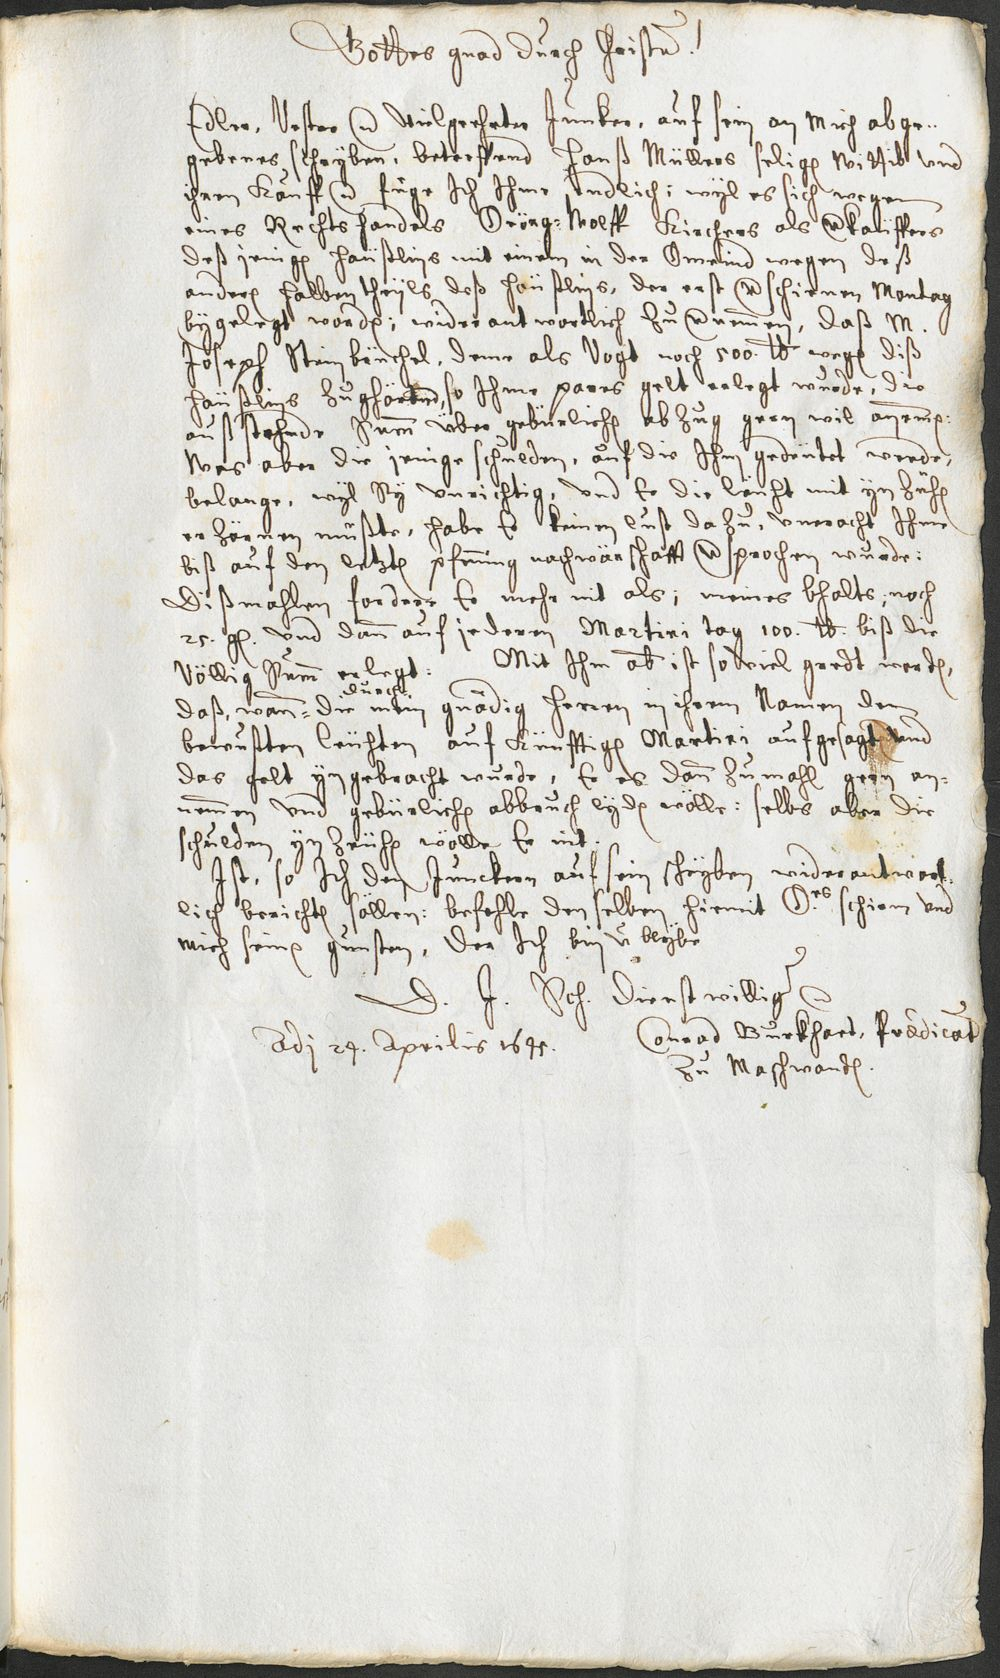 Gottes gnad durch Christū!
Edler, Vester ꝛc Vielgeehrter Junker, auf sein an Mich abge¬
gebenes schryben, betreffend Hanß Müllers selig Wittib vnd
ihren Kauff ꝛc füge Ich Ihme endlich: wyl es sich wegen
eines Rechtshandels Geörg-Wolff Kirchers als Verkäuffers
deß jenigen häußlins mit einem in der Gmeind wegen deß
anderen halben theyls deß häußlins, der erst verschienen Montag
bygelegt worden; widerantwortlich zu vernemmen, daß M.
Joseph Steinbrüchel, deme als Vogt noch 500. lb wegen diß
häußlins zughörend, so Ihme pares gelt erlegt wurde, die
außstehnde Sum̄ über gebürlichen abzug gern wil annemen:
Was aber die jenige schulden, auf die Ihm gedeütet werde,
belange, wyl Sy vnrichtig, vnd Er die lëüht mit ynzühen
erzörnen müßte, habe Er keinen lust dazu, vneracht Ihme
biß auf den letzten pfenning nachwärschafft versprochen wurde:
Dißmahlen fordere Er mehr nit als; meines bhalts; noch
25. gl. vnd dan̄ auf jederen Martini tag 100. lb. biß die
Völlig Sum̄ erlegt: Mit Ihm ab ist so viel gredt worden,
daß, wan̄ durch die mein gnädig Herren in ihrem Namen den
bewußten leühten auf künfftigen Martini aufgesagt vnd
das gelt yngebracht wurde, Er es dan̄ zumahl gern an¬
nemmen vnd gebürlichen abbruch lyden wölle: selbs aber die
schulden ynzeühen wölle Er nit.
Ist, so Ich den Junckern auf sein schryben widerantwort¬
lich berichten söllen: befehle denselben hiemit G.es schirm vnd
mich seinen gunsten, der Ich bin v. blybe
D. J. Sch. Dienstwilligr
Conrad Burkhart, Prædicāt
zu Maschwanden.
Adj 24. Aprilis 1695.